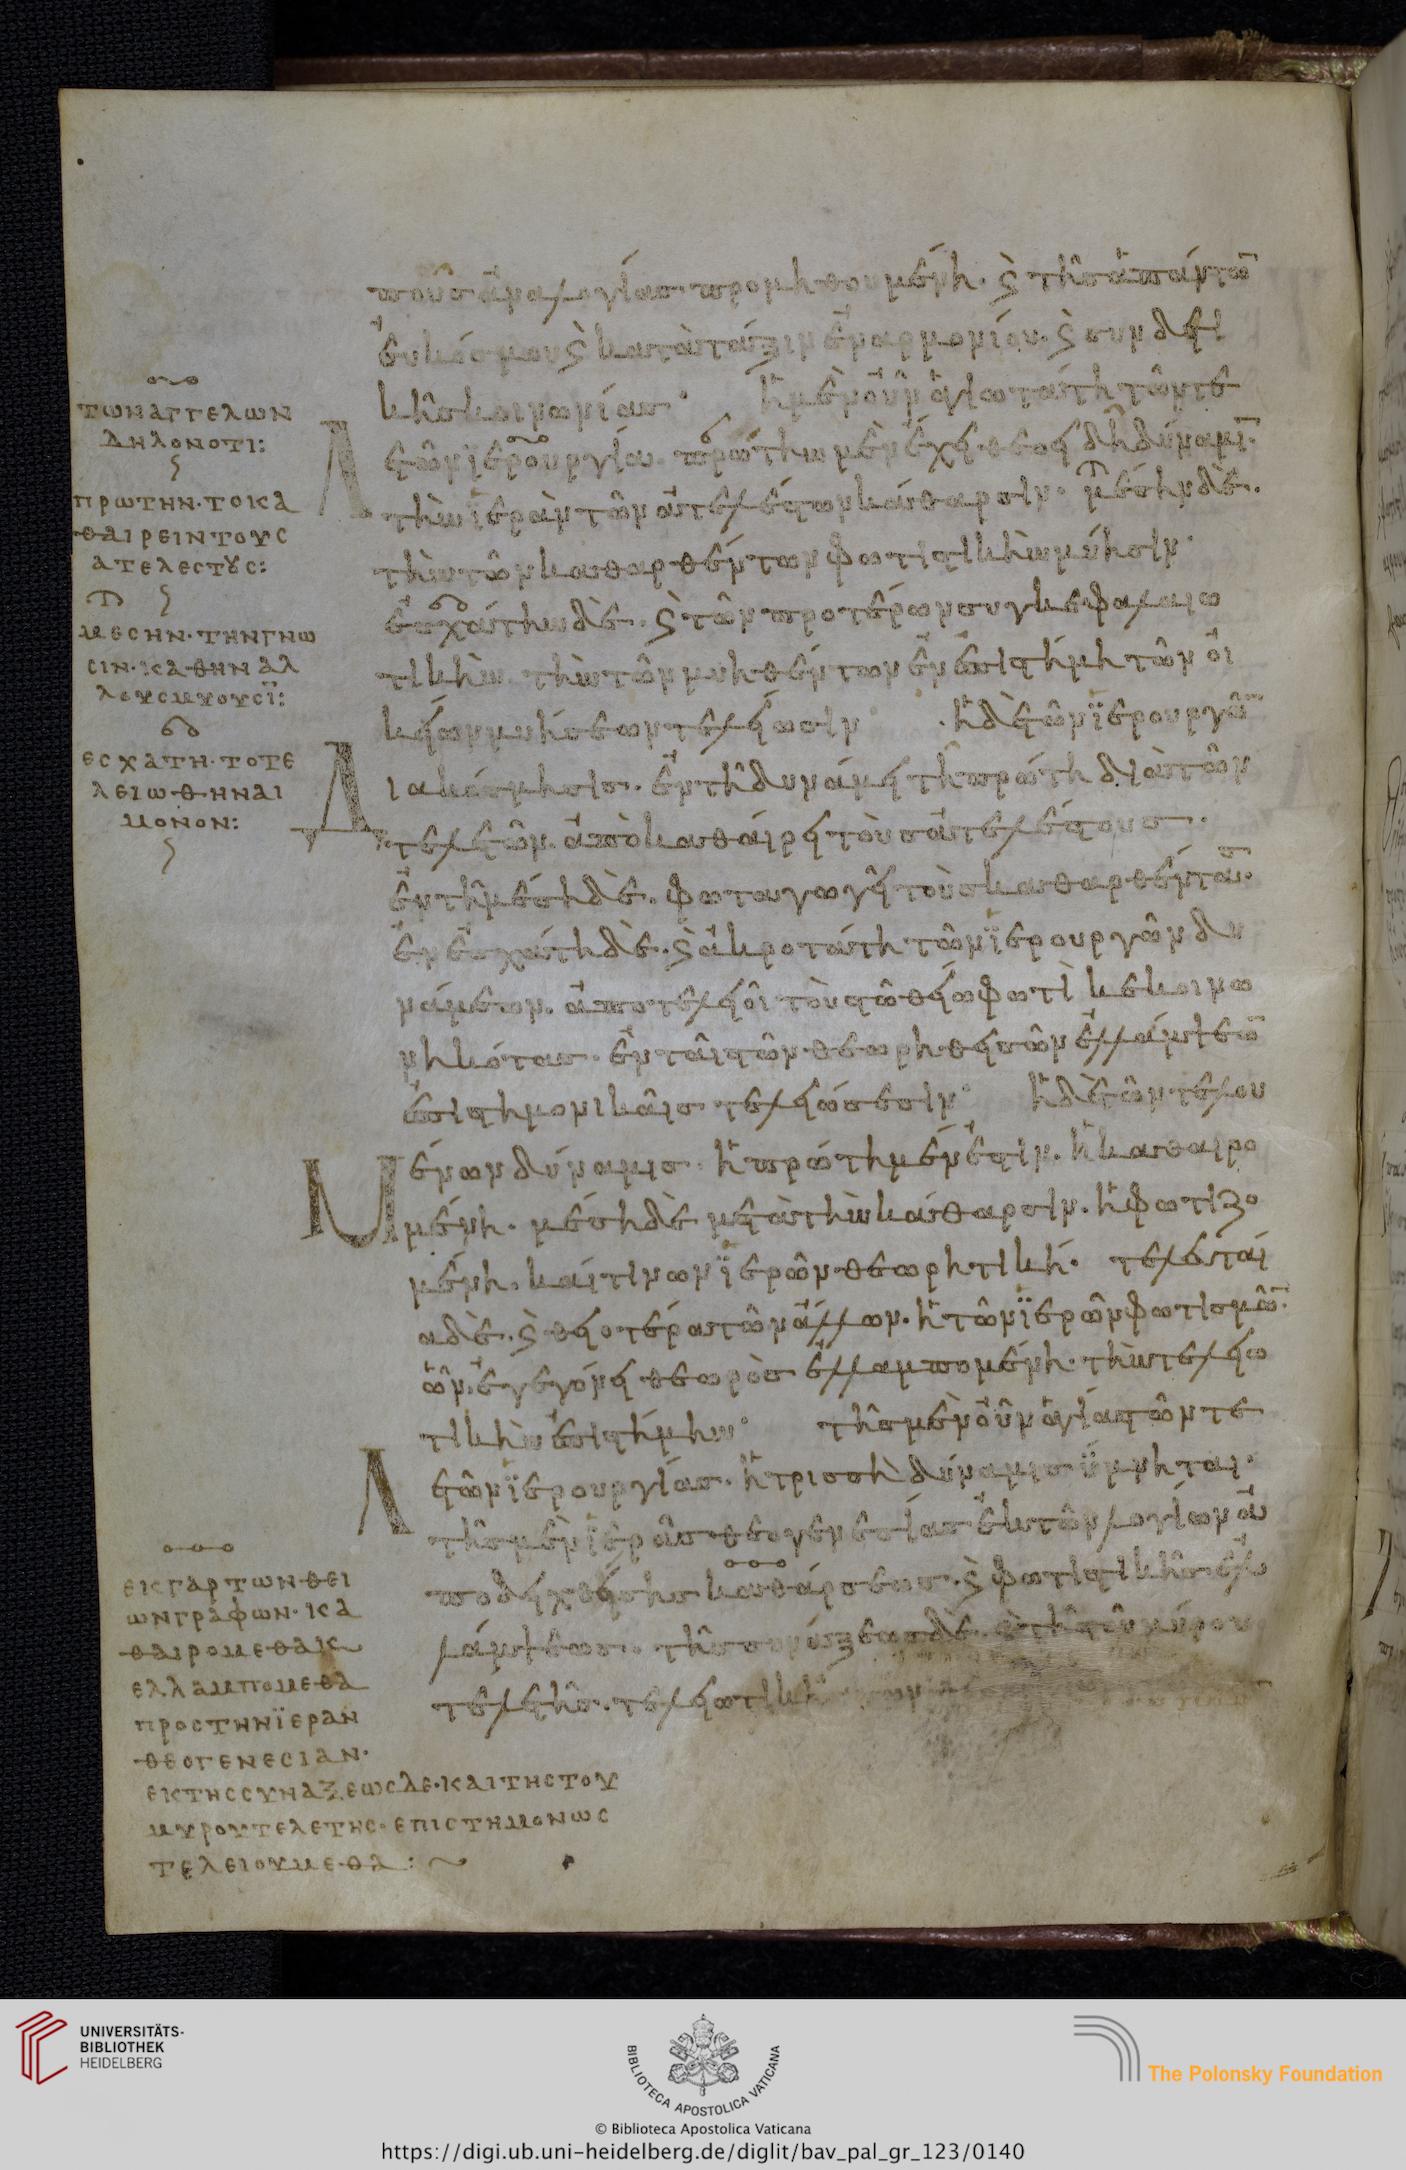 πουσ ἀναλογίασ· προμηθουμένη. ϛ̀ τῆσ ἁπάντω̄
εὐκόσμου ϛ̀ κατὰ τάξιν ἐναρμονίου. ϛ̀ συνδετι
κῆσ κοινωνίασ· Ἡ μὲν οὖν ἁγιωτάτη τῶν τε
Λετῶν ϊερουργία. πρώτην μὲν ἔχει θεοειδῆ δύναμῑ·
τὴν ϊερὰν τῶν ἀτελέστων κάθαρσιν· μέσην δὲ.
τὴν τῶν καθαρθέντων φωτιστικὴν μύησιν·
ἐσχάτην δὲ. ϛ̀ τῶν προτέρων συγκεφαλαιω
τικὴν τὴν τῶν μυηθέντων ἐν ἐπιστήμη τῶν οἰ
κείων μυήσεων τελείωσιν· Ἡ δὲ τῶν ϊερουργῶ̄
Διακόσμησισ. ἐν τῆ δυνάμει τῆ πρώτη διὰ τῶν
τελετῶν. ἀποκαθαίρει τοὺσ ἀτελέστουσ.
ἐν τῆ μέση δὲ. φωταγωγεῖ τοὺσ καθαρθέντασ.
ἐν ἐσχάτη δὲ. ϛ̀ ἀκροτάτη τῶν ϊερουργῶν δυ
νάμεων. ἀποτελειοῖ τοὺσ τῶ θείω φωτὶ κεκοινω
νηκότασ· ἐν ταῖσ τῶν θεωρηθεισῶν ἐλλάμψεω̄
ἐπιστημονικαῖσ τελειώσεσιν· Ἡ δὲ τῶν τελου
Μένων δύναμισ. ἡ πρώτη μέν ἐστιν. ἡ καθαιρο
μένη. μέση δὲ μετὰ τὴν κάθαρσιν. ἡ φωτιζο
μένη. καί τινων ϊερῶν θεωρητική. τελευταί
α δὲ. ϛ̀ θειοτέρα τῶν ἄλλων. ἡ τῶν ϊερῶν φωτισμῶ̄.
ὧν. ἐγεγόνει θεωρὸσ ἐλλαμπομένη. τὴν τελειω
τικὴν ἐπιστήμην· τῆσ μὲν οὖν ἁγίασ τῶν τε
Λετῶν ϊερουργίασ. ἡ τρισσὴ δύναμισ ὕμνηται·
τῆσ μὲν ϊερᾶσ θεογενεσίασ ἐκ τῶν λογίων ἀ
ποδειχθείσησ καθάρσεωσ. ϛ̀ φωτιστικῆσ ἐλ
λάμψεωσ. τῆσ συνάξεωσ δὲ. ϛ̀ τῆσ τοῦ μύρου
τελετῆσ. τελειωτικῆσ
ΤΩΝ ΑΓΓΕΛΩΝ
ΔΗΛΟΝΟΤΙ:
ΠΡΩΤΗΝ· ΤΟ ΚΑ
ΘΑΙΡΕΙΝ ΤΟΥC
ΑΤΕΛΕCΤȢC:
ΜΕCΗΝ· ΤΗΝ ΓΝΩ
CΙΝ· ΚΑΘ ΗΝ ΑΛ
ΛΟΥC ΜΥΟΥCΪ:
ΕCΧΑΤΗ· ΤΟ ΤΕ
ΛΕΙΩΘΗΝΑΙ
ΜΟΝΟΝ:
ΕΚ ΓΑΡ ΤΩΝ ΘΕΙ
ΩΝ ΓΡΑΦΩΝ· ΚΑ
ΘΑΙΡΟΜΕΘΑ Κ
ΕΛΛΑΜΠΟΜΕΘΑ
ΠΡΟC ΤΗΝ ΪΕΡΑΝ
ΘΕΟΓΕΝΕCΙΑΝ·
ΕΚ ΤΗC CΥΝΑΞΕΩC ΔΕ· ΚΑΙ ΤΗC ΤΟΥ
ΜΥΡΟΥ ΤΕΛΕΤΗC· ΕΠΙCΤΗΜΟΝΩC
ΤΕΛΕΙΟΥΜΕΘΑ:~
UNIVERSITÄTS-
BIBLIOTHEK
HEIDELBERG
BIBLIOTECA APOSTOLICA VATICANA
© Biblioteca Apostolica Vaticana
The Polonsky Foundation
https://digi.ub.uni-heidelberg.de/diglit/bav_pal_gr_123/0140